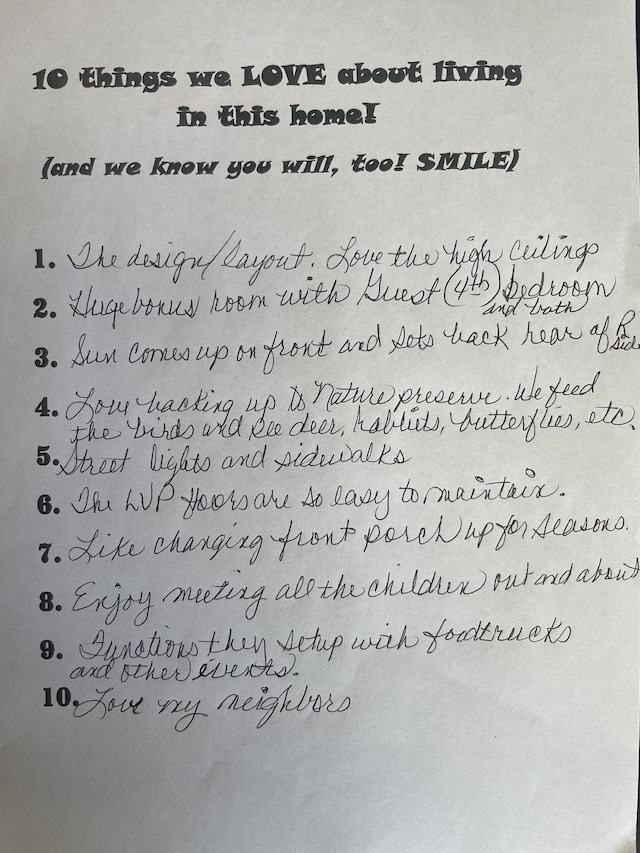 10 things we LOVE about living
in this home!
(and we know you will, too! SMILE)
1. The design/layout. Love the high ceilings
2. Huge bonus room with Guest (4th) bedroom
and bath
3. Sun comes up on front and sets back rear of R
side
4. Love backing up to Nature preserve. We feed
the birds and see deer, rabbits, butterflies, etc.
5. Street lights and sidewalks
6. The LVP floors are so easy to maintain.
7. Like changing front porch up for seasons.
8. Enjoy meeting all the children out and about
9. Functions they setup with foodtrucks
and other events.
10. Love my neighbors